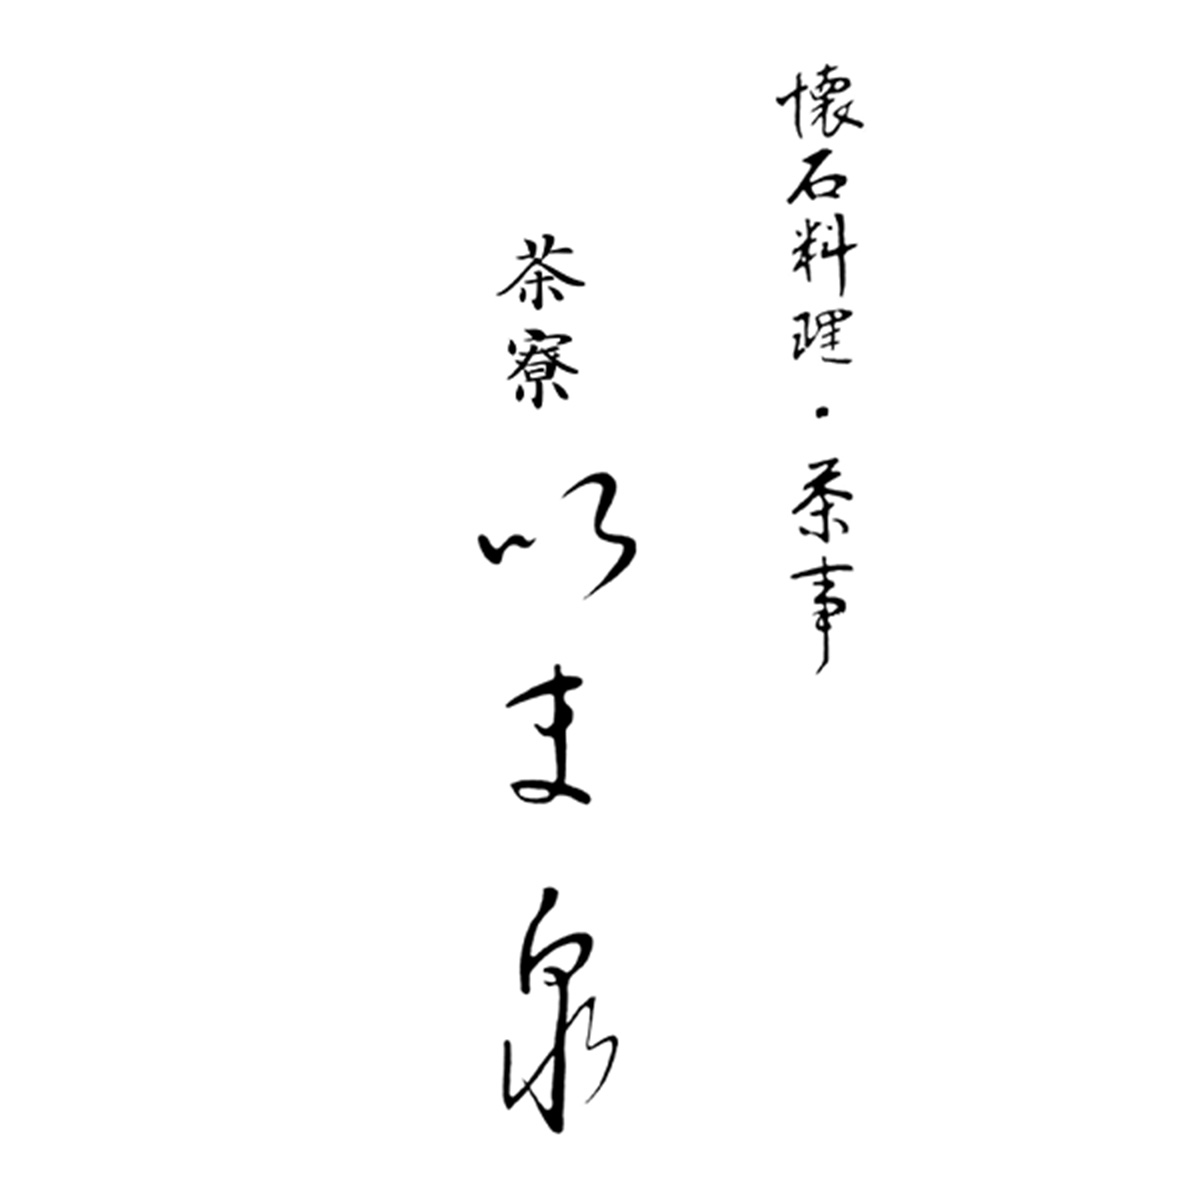 懐石料理・茶事
茶寮 いま泉